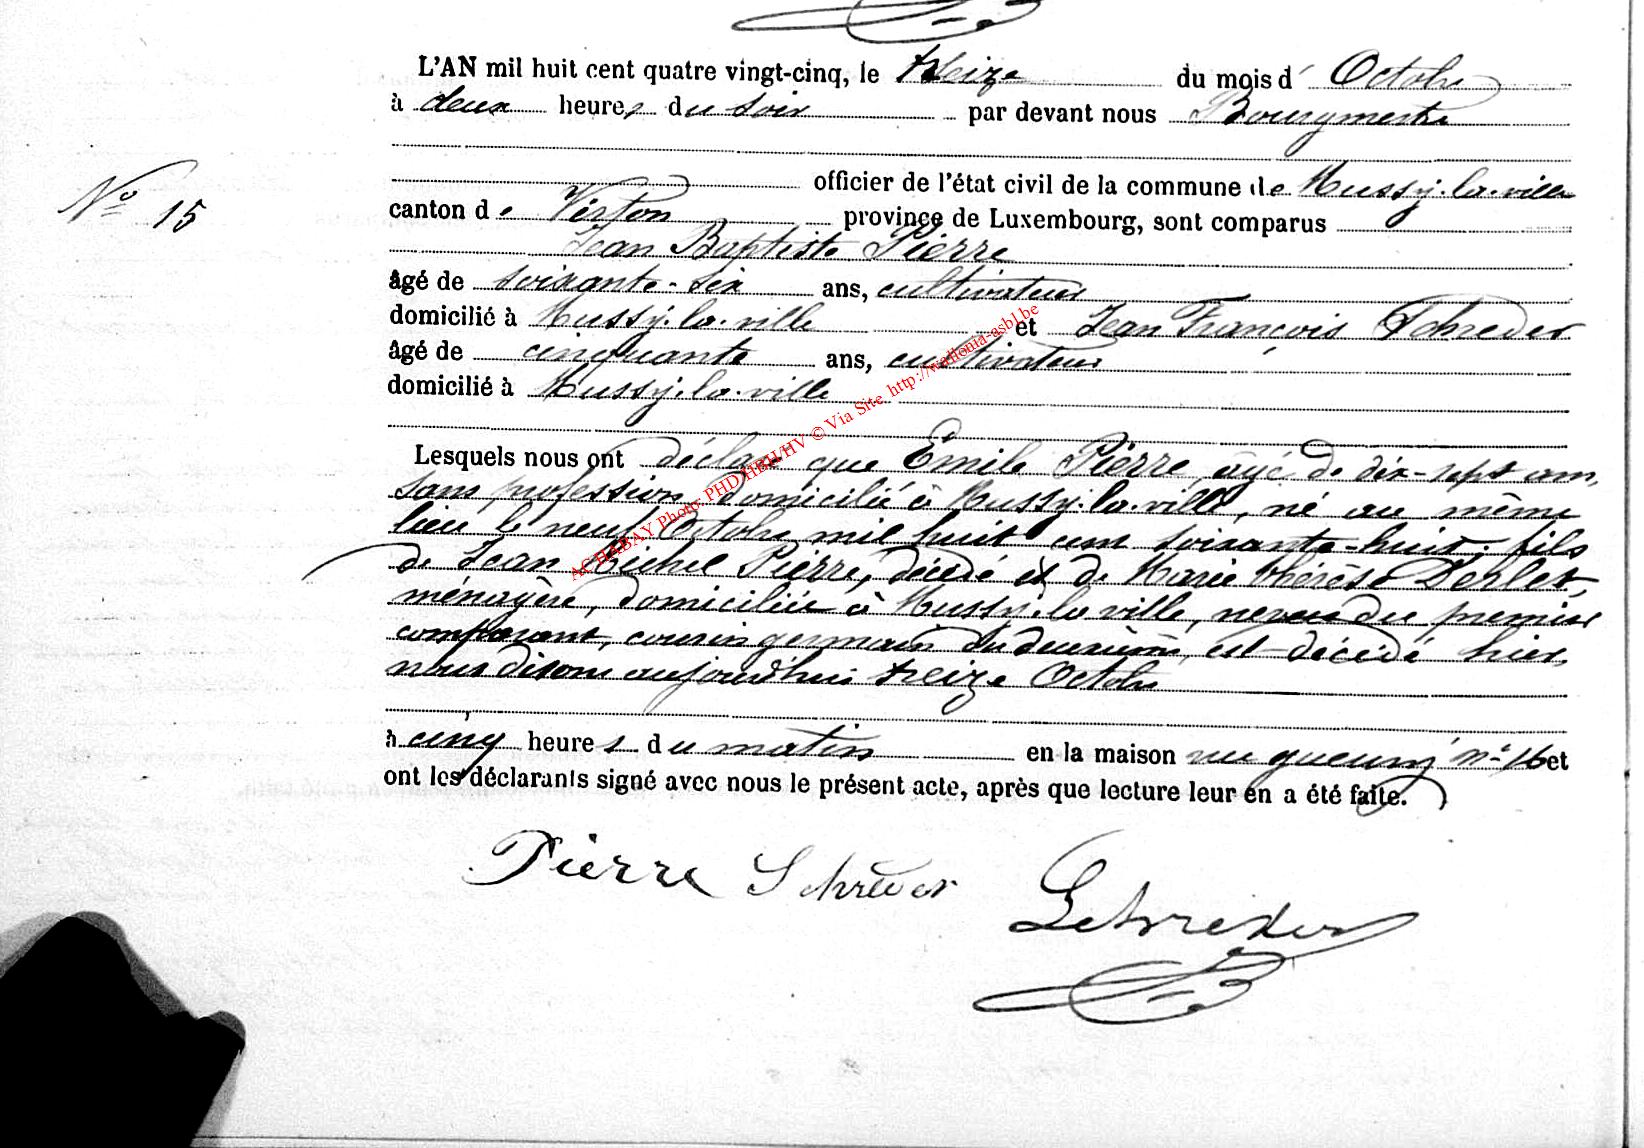 L'AN mil huit cent quatre vingt-cinq, le treize du mois d' Octobre
à deux heures du soir par devant nous Bourgmestre
officier de l'état civil de la commune de Mussy-la-ville
No 15
canton de Virton province de Luxembourg, sont comparus
Jean Baptiste Pierre
âgé de soixante-six ans, cultivateur
domicilié à Mussy-la-ville et Jean François Schreder
âgé de cinquante ans, cultivateur
domicilié à Mussy-la-ville
Lesquels nous ont déclaré que Emile Pierre, âgé de dix-sept ans,
sans profession, domicilié à Mussy-la-ville, né au même
lieu le neuf Octobre mil huit cent soixante-huit, fils
de Jean Michel Pierre, décédé et de Marie Thérèse Derlet,
ménagère, domiciliée à Mussy-la-ville, neveu du premier
comparant, cousin germain du deuxième, est décédé hier,
nous disons aujourd'hui treize Octobre
à cinq heures du matin en la maison rue n° 16 et
ont les déclarants signé avec nous le présent acte, après que lecture leur en a été faite.
Pierre Schreder Schreder
ACHABAY Photo: PHD HBH/HV © Via Site http://wallonia-asbl.be